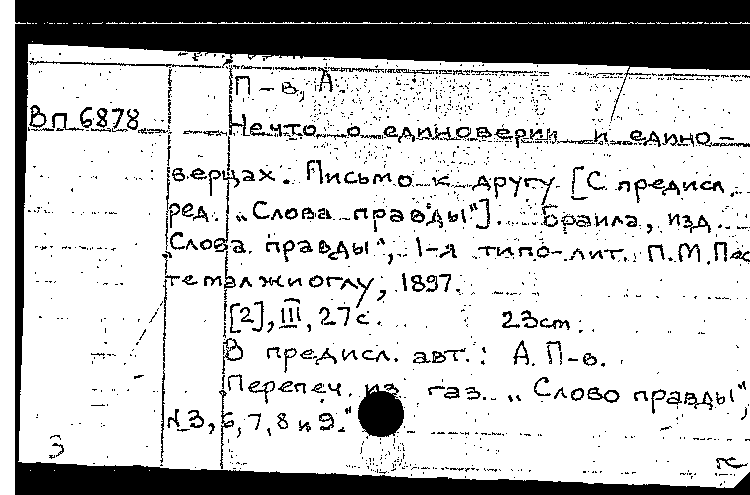 П-в, А.
ВП 6878
Нечто о единоверии и едино-
верцах. Письмо к другу [С предисл.
ред. "Слова правды"]. Браила, изд.
"Слова правды", 1-я типо-лит. П.М.Пес
темалжиоглу, 1897.
[2], III, 27с. 23cm.
В предисл. авт.: А. П-в.
Перепеч. из газ. "Слово правды",
№3, 6, 7, 8 и 9."
3